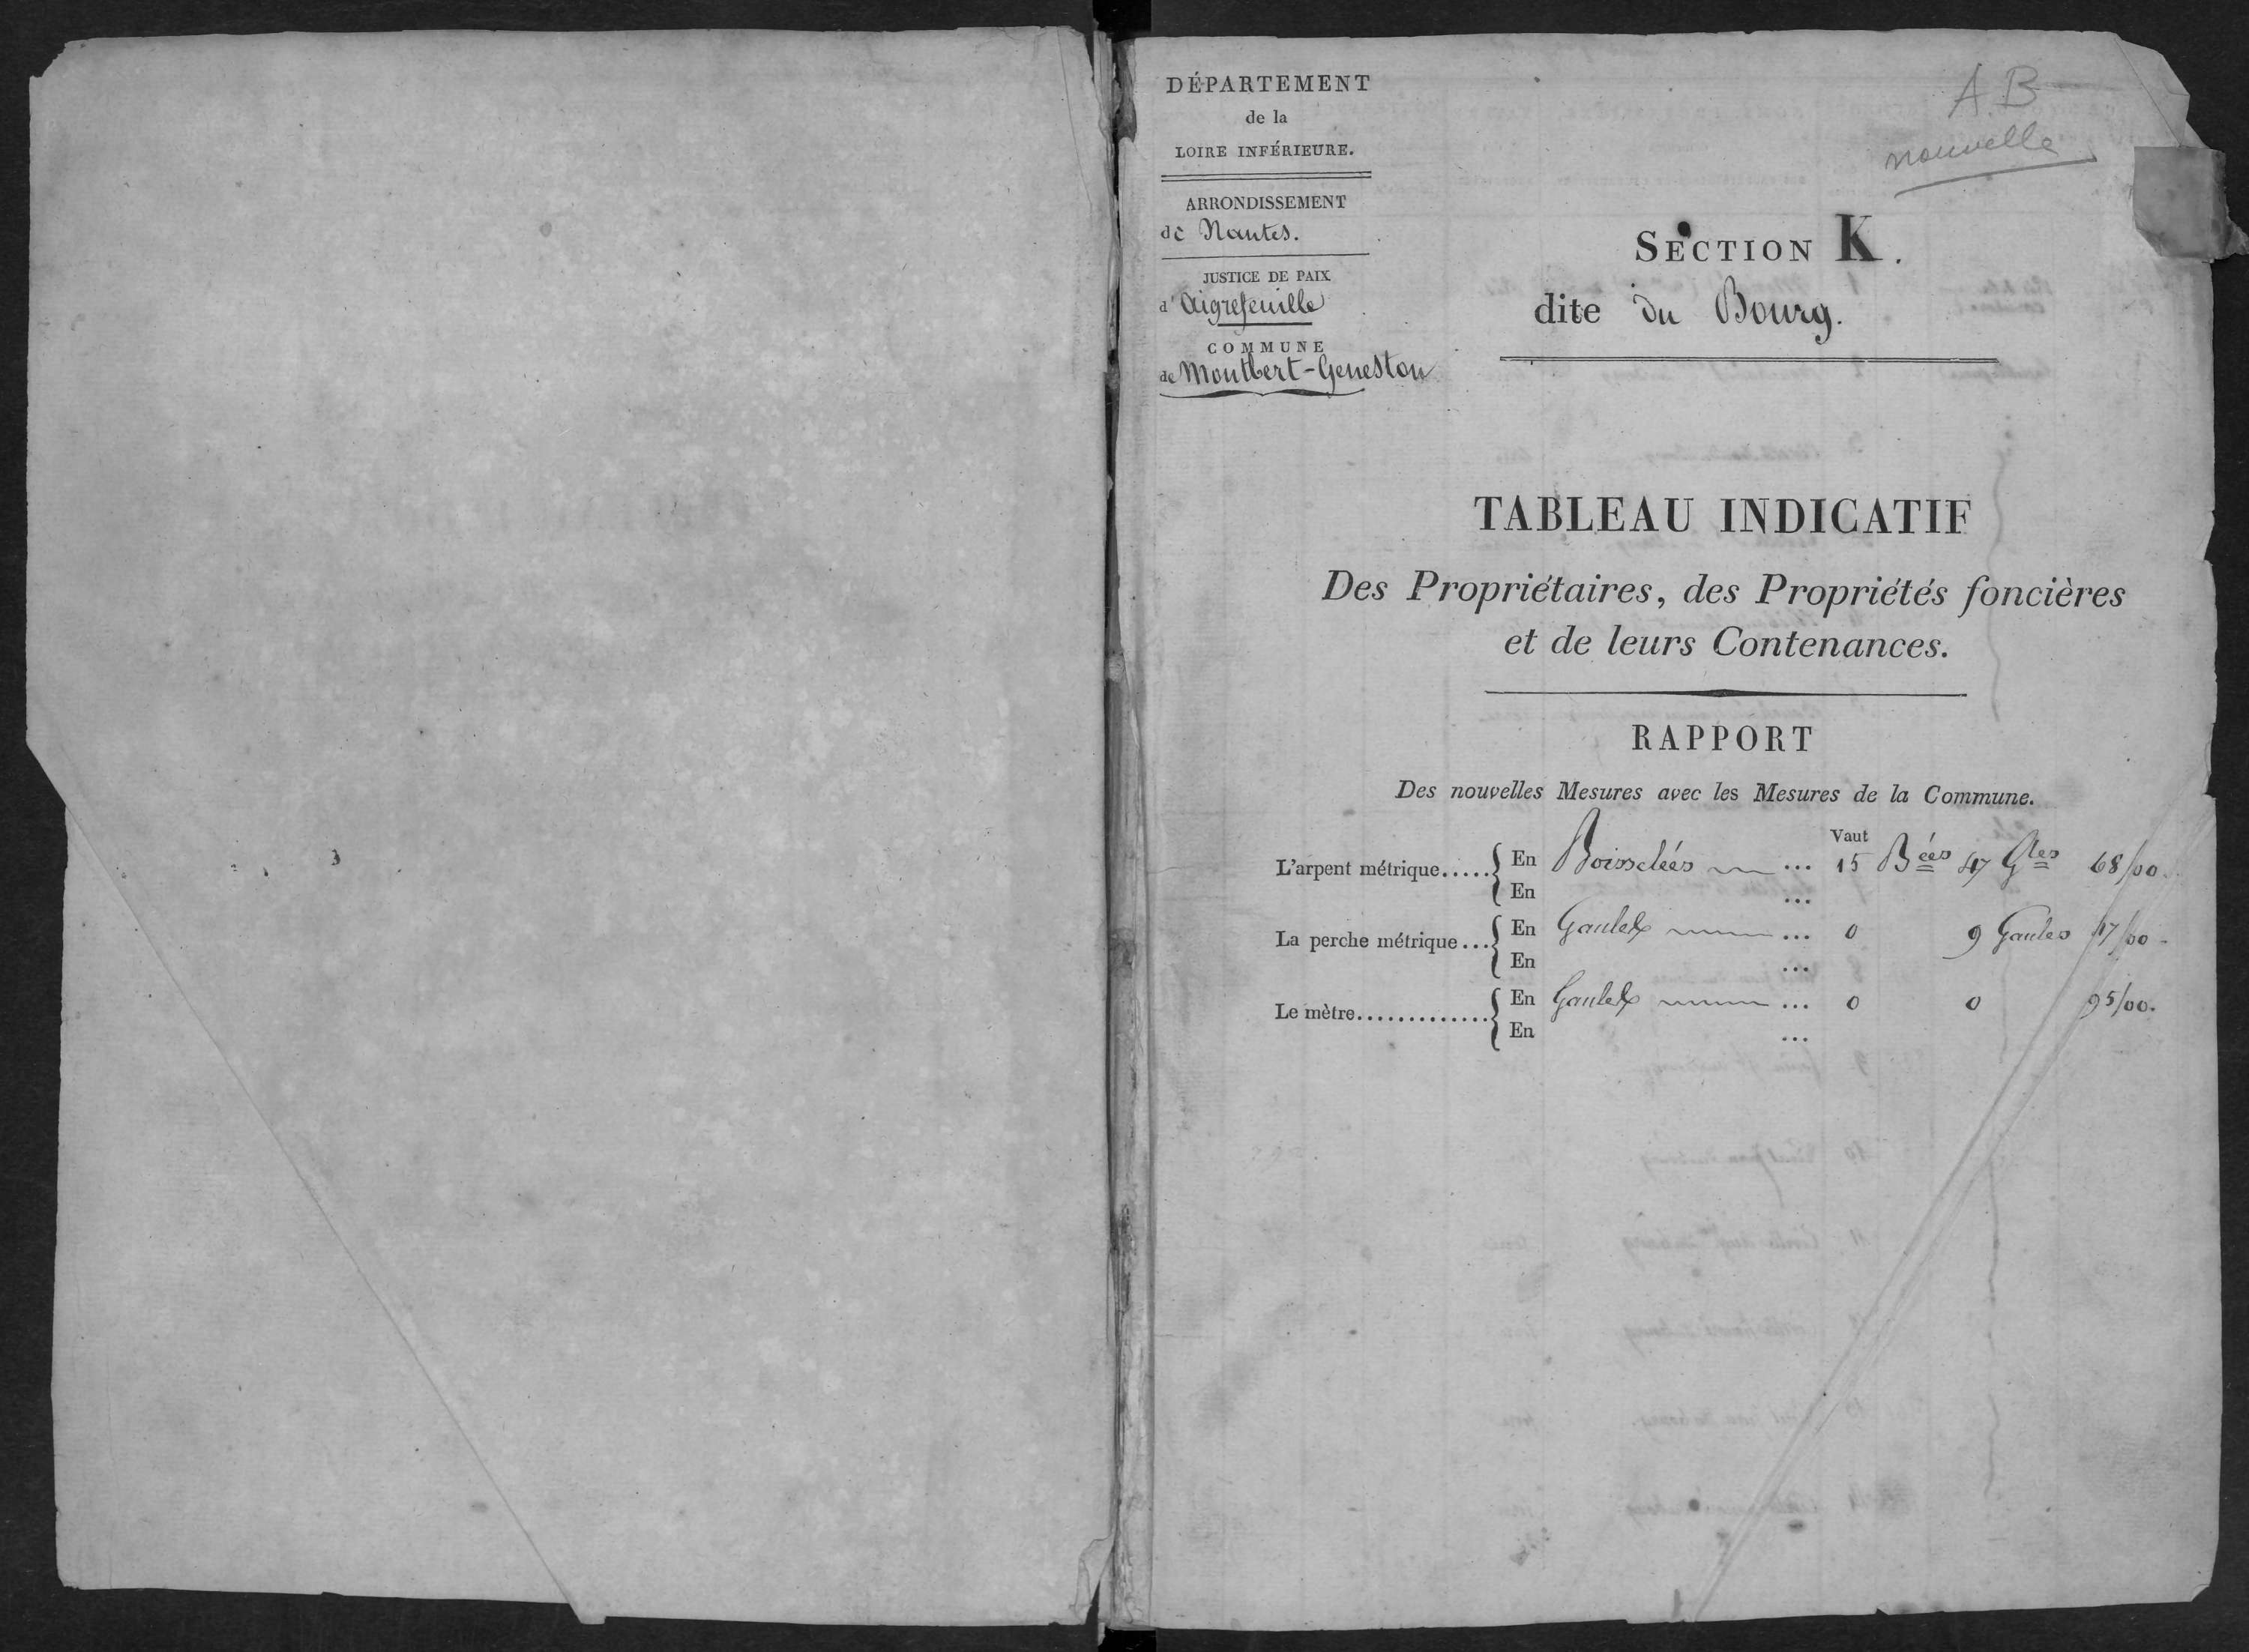 DÉPARTEMENT
de la
LOIRE INFÉRIEURE.
ARRONDISSEMENT
de Nantes.
JUSTICE DE PAIX
d'Aigrefeuille
COMMUNE
de Montbert-Geneston
A B
nouvelle
SECTION K.
dite du Bourg.
TABLEAU INDICATIF
Des Propriétaires, des Propriétés foncières
et de leurs Contenances.
RAPPORT
Des nouvelles Mesures avec les Mesures de la Commune.
Vaut
L'arpent métrique..... { En Boisselées ... 15 Bées 47 Gles 68/00.
En ...
La perche métrique... { En Gaules ... 0 9 Gaules 47/00.
En ...
Le mètre............. { En Gaules ... 0 0 95/00.
En ...